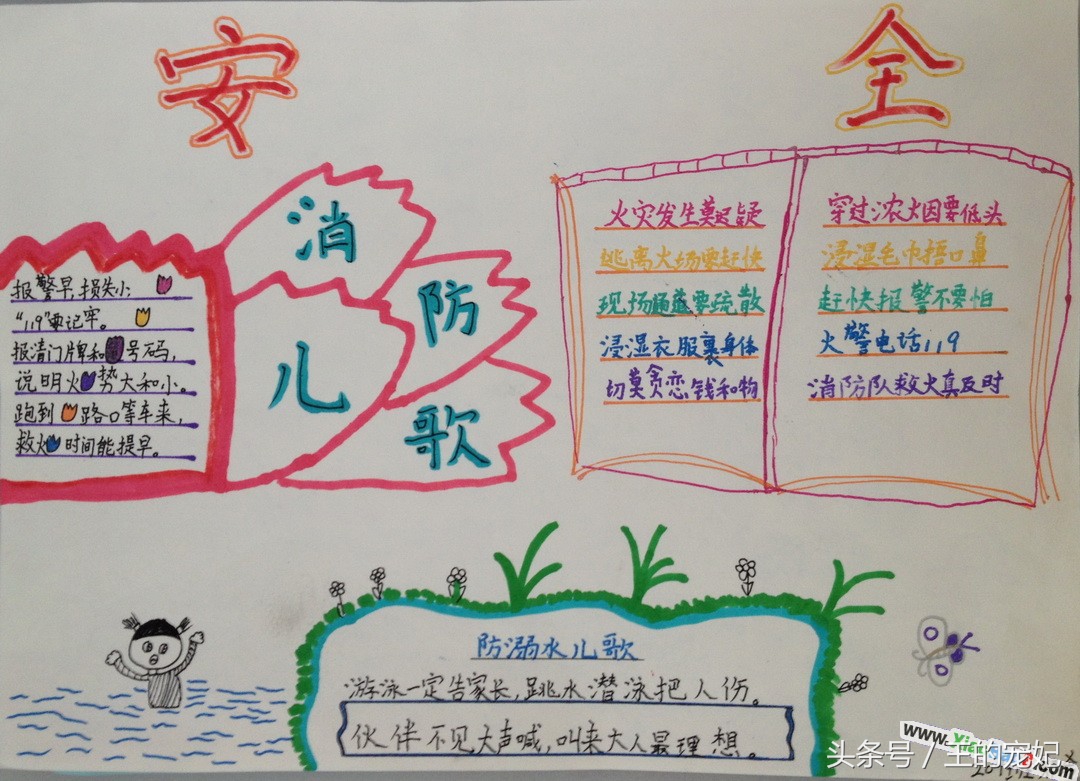 安
全
消
防
儿
歌
报警早,损失小;
“119”要记牢。
报清门牌和号码,
说明火势大和小。
跑到路口等车来,
救火时间能提早。
火灾发生莫迟疑
逃离火场要赶快
现场 要疏散
浸湿衣服裹身体
切莫贪恋钱和物
穿过浓烟要低头
浸湿毛巾捂口鼻
赶快报警不要怕
火警电话119
消防队救火真及时
防溺水儿歌
游泳一定告家长,跳水潜泳把人伤。
伙伴不见大声喊,叫来大人最理想。
头条号/王的宠妃
www.
.com